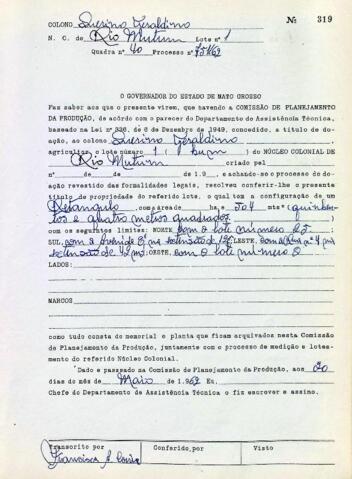 Nº 319
COLONO Quesino Geraldino
N. C. de Rio Mutum Lote nº 1
Quadra nº 40 Processo nº
O GOVERNADOR DO ESTADO DE MATO GROSSO
Faz saber aos que o presente virem, que havendo a COMISSÃO DE PLANEJAMENTO
DA PRODUÇÃO, de acôrdo com o parecer do Departamento de Assistência Técnica,
baseado na Lei nº 336, de 6 de Dezembro de 1949, concedido, a título de doa-
ção, ao colono Quesino Geraldino
agricultor, o lote número 1 (hum) do NÚCLEO COLONIAL DE
Rio Mutum criado pel
nº de de de 19 e achando-se o processo de do
ação revestido das formalidades legais, resolveu conferir-lhe o presente
título de propriedade do referido lote, o qual tem a configuração de um
Retangulo com a área de ha e 504 mts² (quinhen-
tos e quatro metros quadrados)
com os seguintes limites: NORTE com o lote numero 23
SUL com a Avenida na extensão de LESTE, com a Rua nº 4 na
extensão de 42 m; OESTE, com o lote numero 2
LADOS:
MARCOS
como tudo consta do memorial e planta que ficam arquivados nesta Comissão
de Planejamento da Produção, juntamente com o processo de medição e lotea-
mento do referido Núcleo Colonial.
Dado e passado na Comissão de Planejamento da Produção, aos 20
dias do mês de Maio de 1962 Eu,
Chefe do Departamento de Assistência Técnica o fiz escrever e assino.
Transcrito por Conferido por Visto
Francisca A.